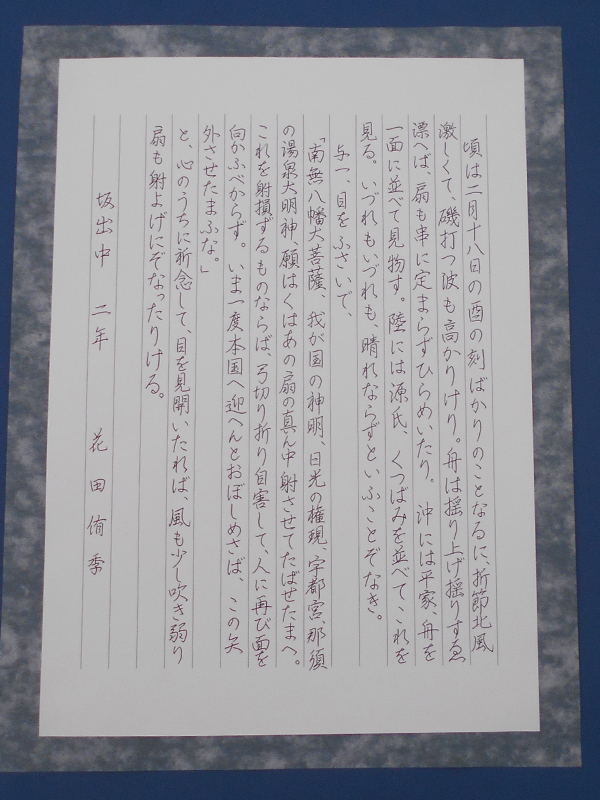 頃は二月十八日の酉の刻ばかりのことなるに、折節北風
激しくて、磯打つ波も高かりけり。舟は揺り上げ揺りすゑ
漂へば、扇も串に定まらずひらめいたり。沖には平家、舟を
一面に並べて見物す。陸には源氏、くつばみを並べてこれを
見る。いづれもいづれも、晴れならずといふことぞなき。
与一、目をふさいで、
「南無八幡大菩薩、我が国の神明、日光の権現、宇都宮、那須
の湯泉大明神、願はくはあの扇の真ん中射させてたばせたまへ。
これを射損ずるものならば、弓切り折り自害して、人に再び面を
向かふべからず。いま一度本国へ迎へんとおぼしめさば、この矢
外させたまふな。」
と、心のうちに祈念して、目を見開いたれば、風も少し吹き弱り
扇も射よげにぞなったりける。
坂出中 二年 花田侑季